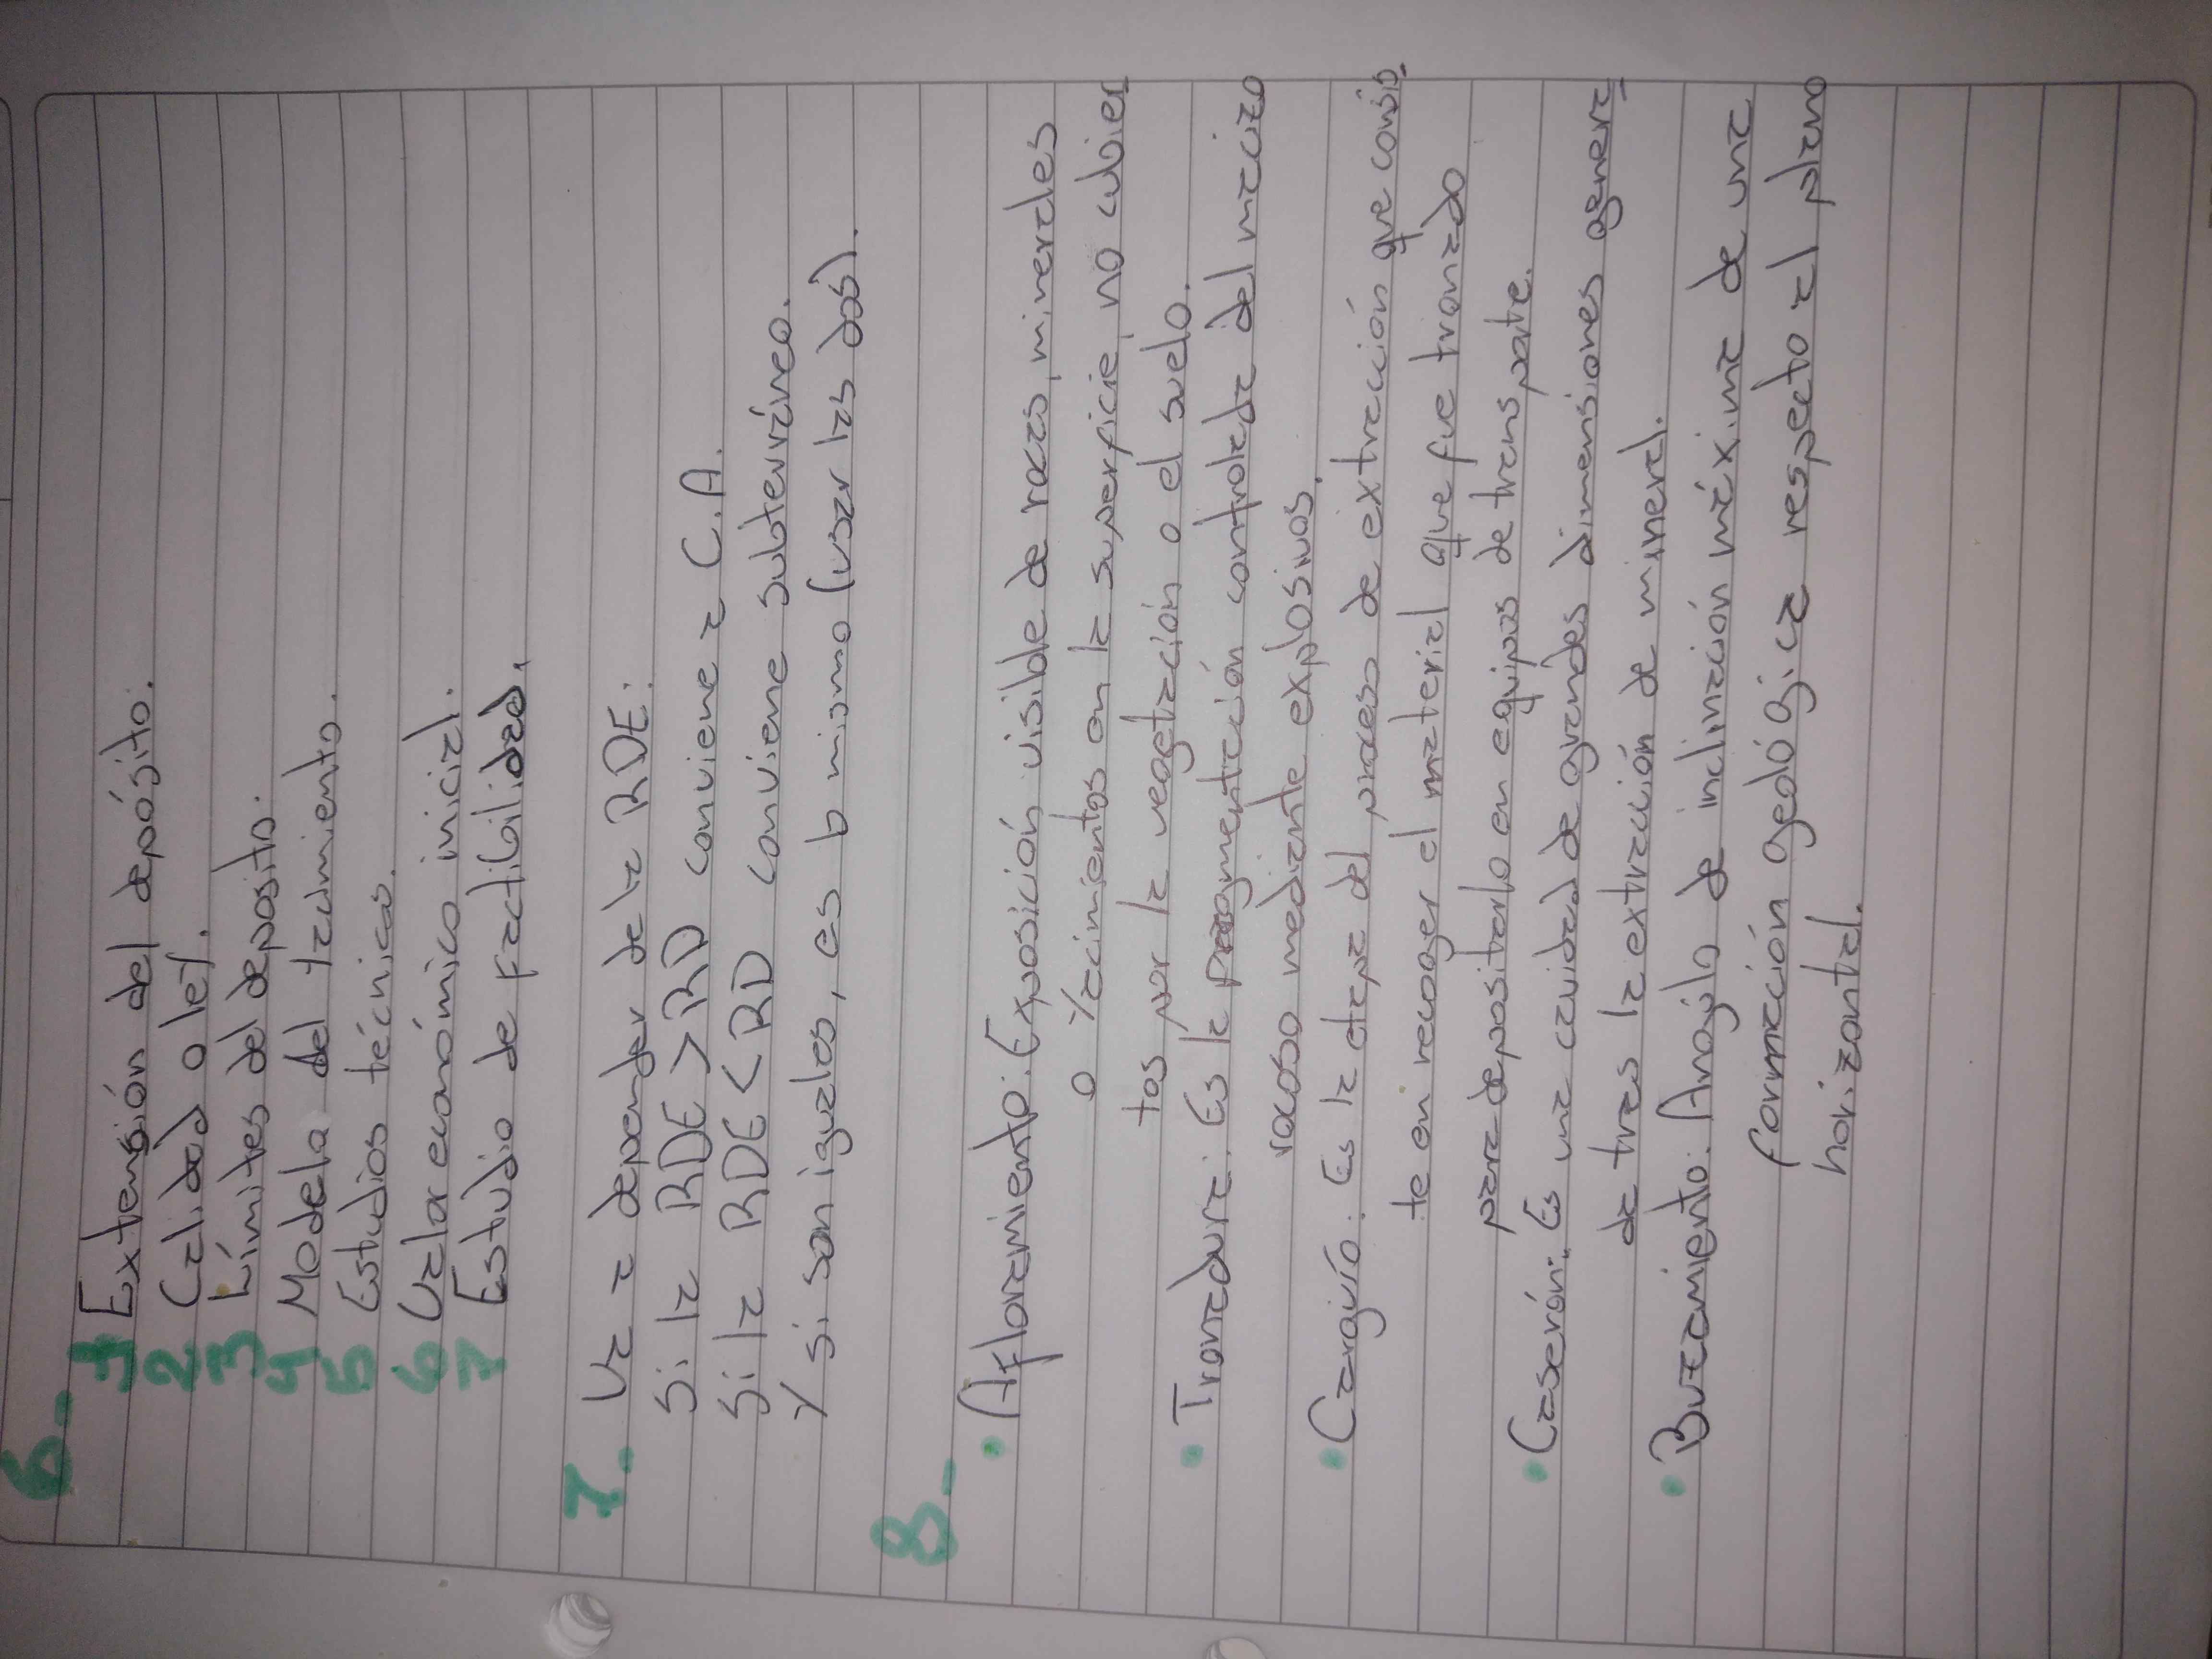 6.-
1 Extensión del depósito.
2 Calidad o ley.
3 Límites del deposito.
4 Modela del yacimiento.
5 Estudios técnicos.
6 Valor económico inicial.
7 Estudio de factibilidad.
7.- Va a depender de la RDE:
Si la RDE > RD conviene a C.A.
Si la RDE < RD conviene subterráneo.
Y si son iguales, es lo mismo (usar las dos).
8.-
• Afloramiento: Exposición visible de rocas, minerales
o yacimientos en la superficie, no cubier
tos por la vegetación o el suelo.
• Tronadura: Es la fragmentación controlada del macizo
rocoso mediante explosivos.
• Carguío: Es la etapa del proceso de extracción que consis-
te en recoger el material que fue tronado
para depositarlo en equipos de transporte.
• Caserón: Es una cavidad de grandes dimensiones genera-
da tras la extracción de mineral.
• Buzamiento: Ángulo de inclinación máxima de una
formación geológica respecto al plano
horizontal.